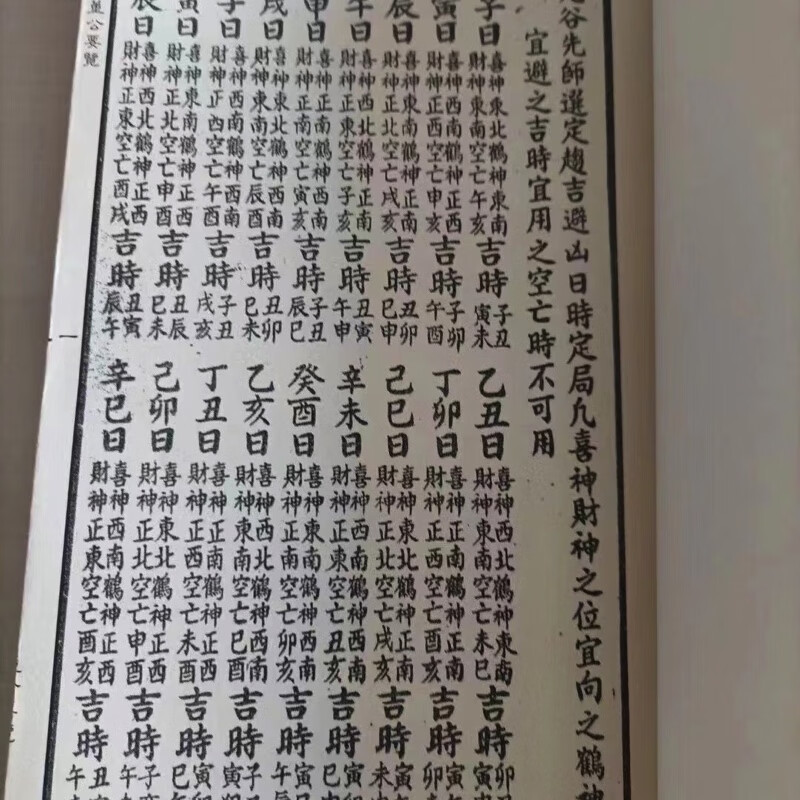 谷先師選定趨吉避凶日時定局凡喜神財神之位宜向之鶴神
宜避之吉時宜用之空亡時不可用
子日
喜神東北鶴神東南
財神東南空亡午亥
吉時
子丑
寅未
寅日
喜神西南鶴神正南
財神正西空亡申亥
吉時
子卯
午酉
辰日
喜神東南鶴神正南
財神正北空亡戌亥
吉時
丑卯
巳申
午日
喜神西北鶴神正南
財神正東空亡子亥
吉時
丑寅
午申
申日
喜神東南鶴神西南
財神正南空亡寅亥
吉時
子丑
辰巳
戌日
喜神東北鶴神西南
財神東南空亡辰酉
吉時
丑卯
巳未
子日
喜神西南鶴神西南
財神正西空亡午酉
吉時
子丑
戌亥
寅日
喜神東南鶴神正西
財神正北空亡申酉
吉時
丑辰
巳未
辰日
喜神西北鶴神正西
財神正東空亡酉戌
吉時
丑寅
辰午
乙丑日
喜神西北鶴神東南
財神東南空亡未巳
吉時
卯
寅
丁卯日
喜神正南鶴神正南
財神正西空亡酉亥
吉時
寅午
卯
己巳日
喜神東北鶴神正南
財神正北空亡戌亥
吉時
寅
未
辛未日
喜神西南鶴神西南
財神正東空亡丑亥
吉時
寅
巳
癸酉日
喜神東南鶴神西南
財神正南空亡卯亥
吉時
寅
午
乙亥日
喜神西北鶴神西南
財神東南空亡巳酉
吉時
子
寅
丁丑日
喜神正南鶴神正西
財神正西空亡未酉
吉時
寅
巳
己卯日
喜神東北鶴神正西
財神正北空亡申酉
吉時
子
午
辛巳日
喜神西南鶴神正西
財神正東空亡酉亥
吉時
丑
午
董公要覽
一